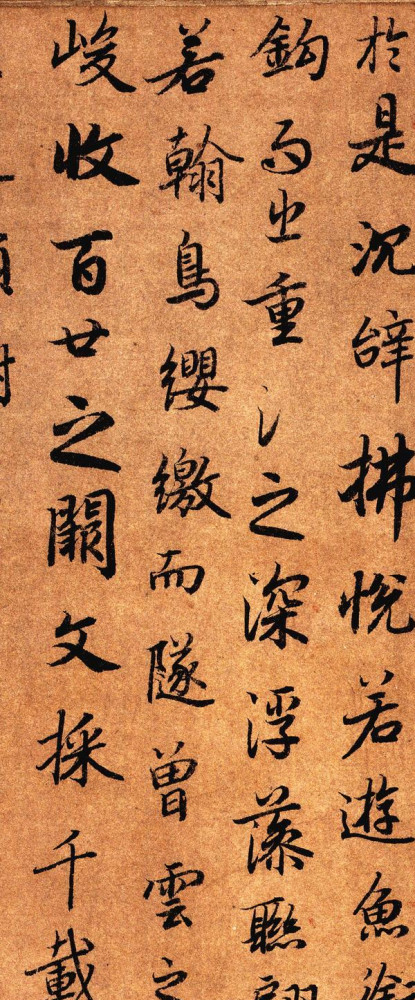 於是沉辝拂悅若遊魚銜
鈎而出重氵之深浮藻聮翩
若翰鳥纓繳而隧曾雲之
峻收百廿之闕文採千載